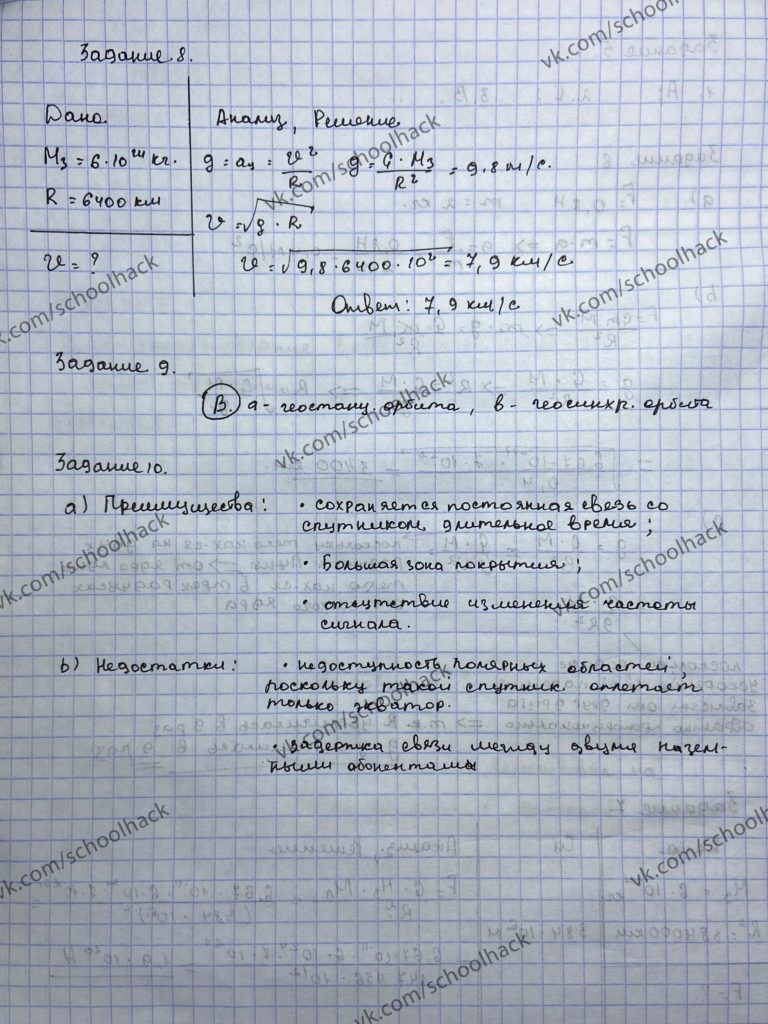 Задание 8.
Дано.
M₃ = 6·10²⁴ кг.
R = 6400 км
v = ?
Анализ, Решение
g = aц = v²/R g = G·M₃/R² = 9.8 м/с.
v = √g·R
v = √9,8·6400·10² = 7,9 км/с
Ответ: 7,9 км/с
Задание 9.
B. a - геостац. орбита, в - геосинхр. орбита
Задание 10.
a) Преимущества: • сохраняется постоянная связь со
спутником длительное время;
• Большая зона покрытия;
• отсутствие изменения частоты
сигнала.
b) Недостатки: • недоступность полярных областей,
поскольку такой спутник
только экватор.
• задержка связи между двумя назем-
ными абонентами
vk.com/schoolhack
vk.com/schoolhack
vk.com/schoolhack
vk.com/schoolhack
vk.com/schoolhack
vk.com/schoolhack
vk.com/schoolhack
vk.com/schoolhack
vk.com/schoolhack
vk.com/schoolhack
vk.com/schoolhack